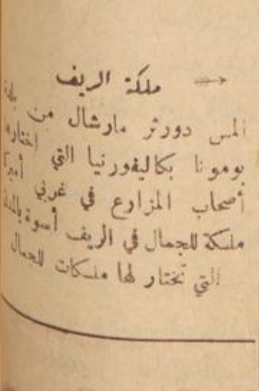 ملكة الريف
المس دورثر مارشال من بلدة
بومونا بكاليفورنيا التي اختارها
أصحاب المزارع في غربي أميركا
ملكة للجمال في الريف أسوة بالمدن
التي تختار لها ملكات للجمال